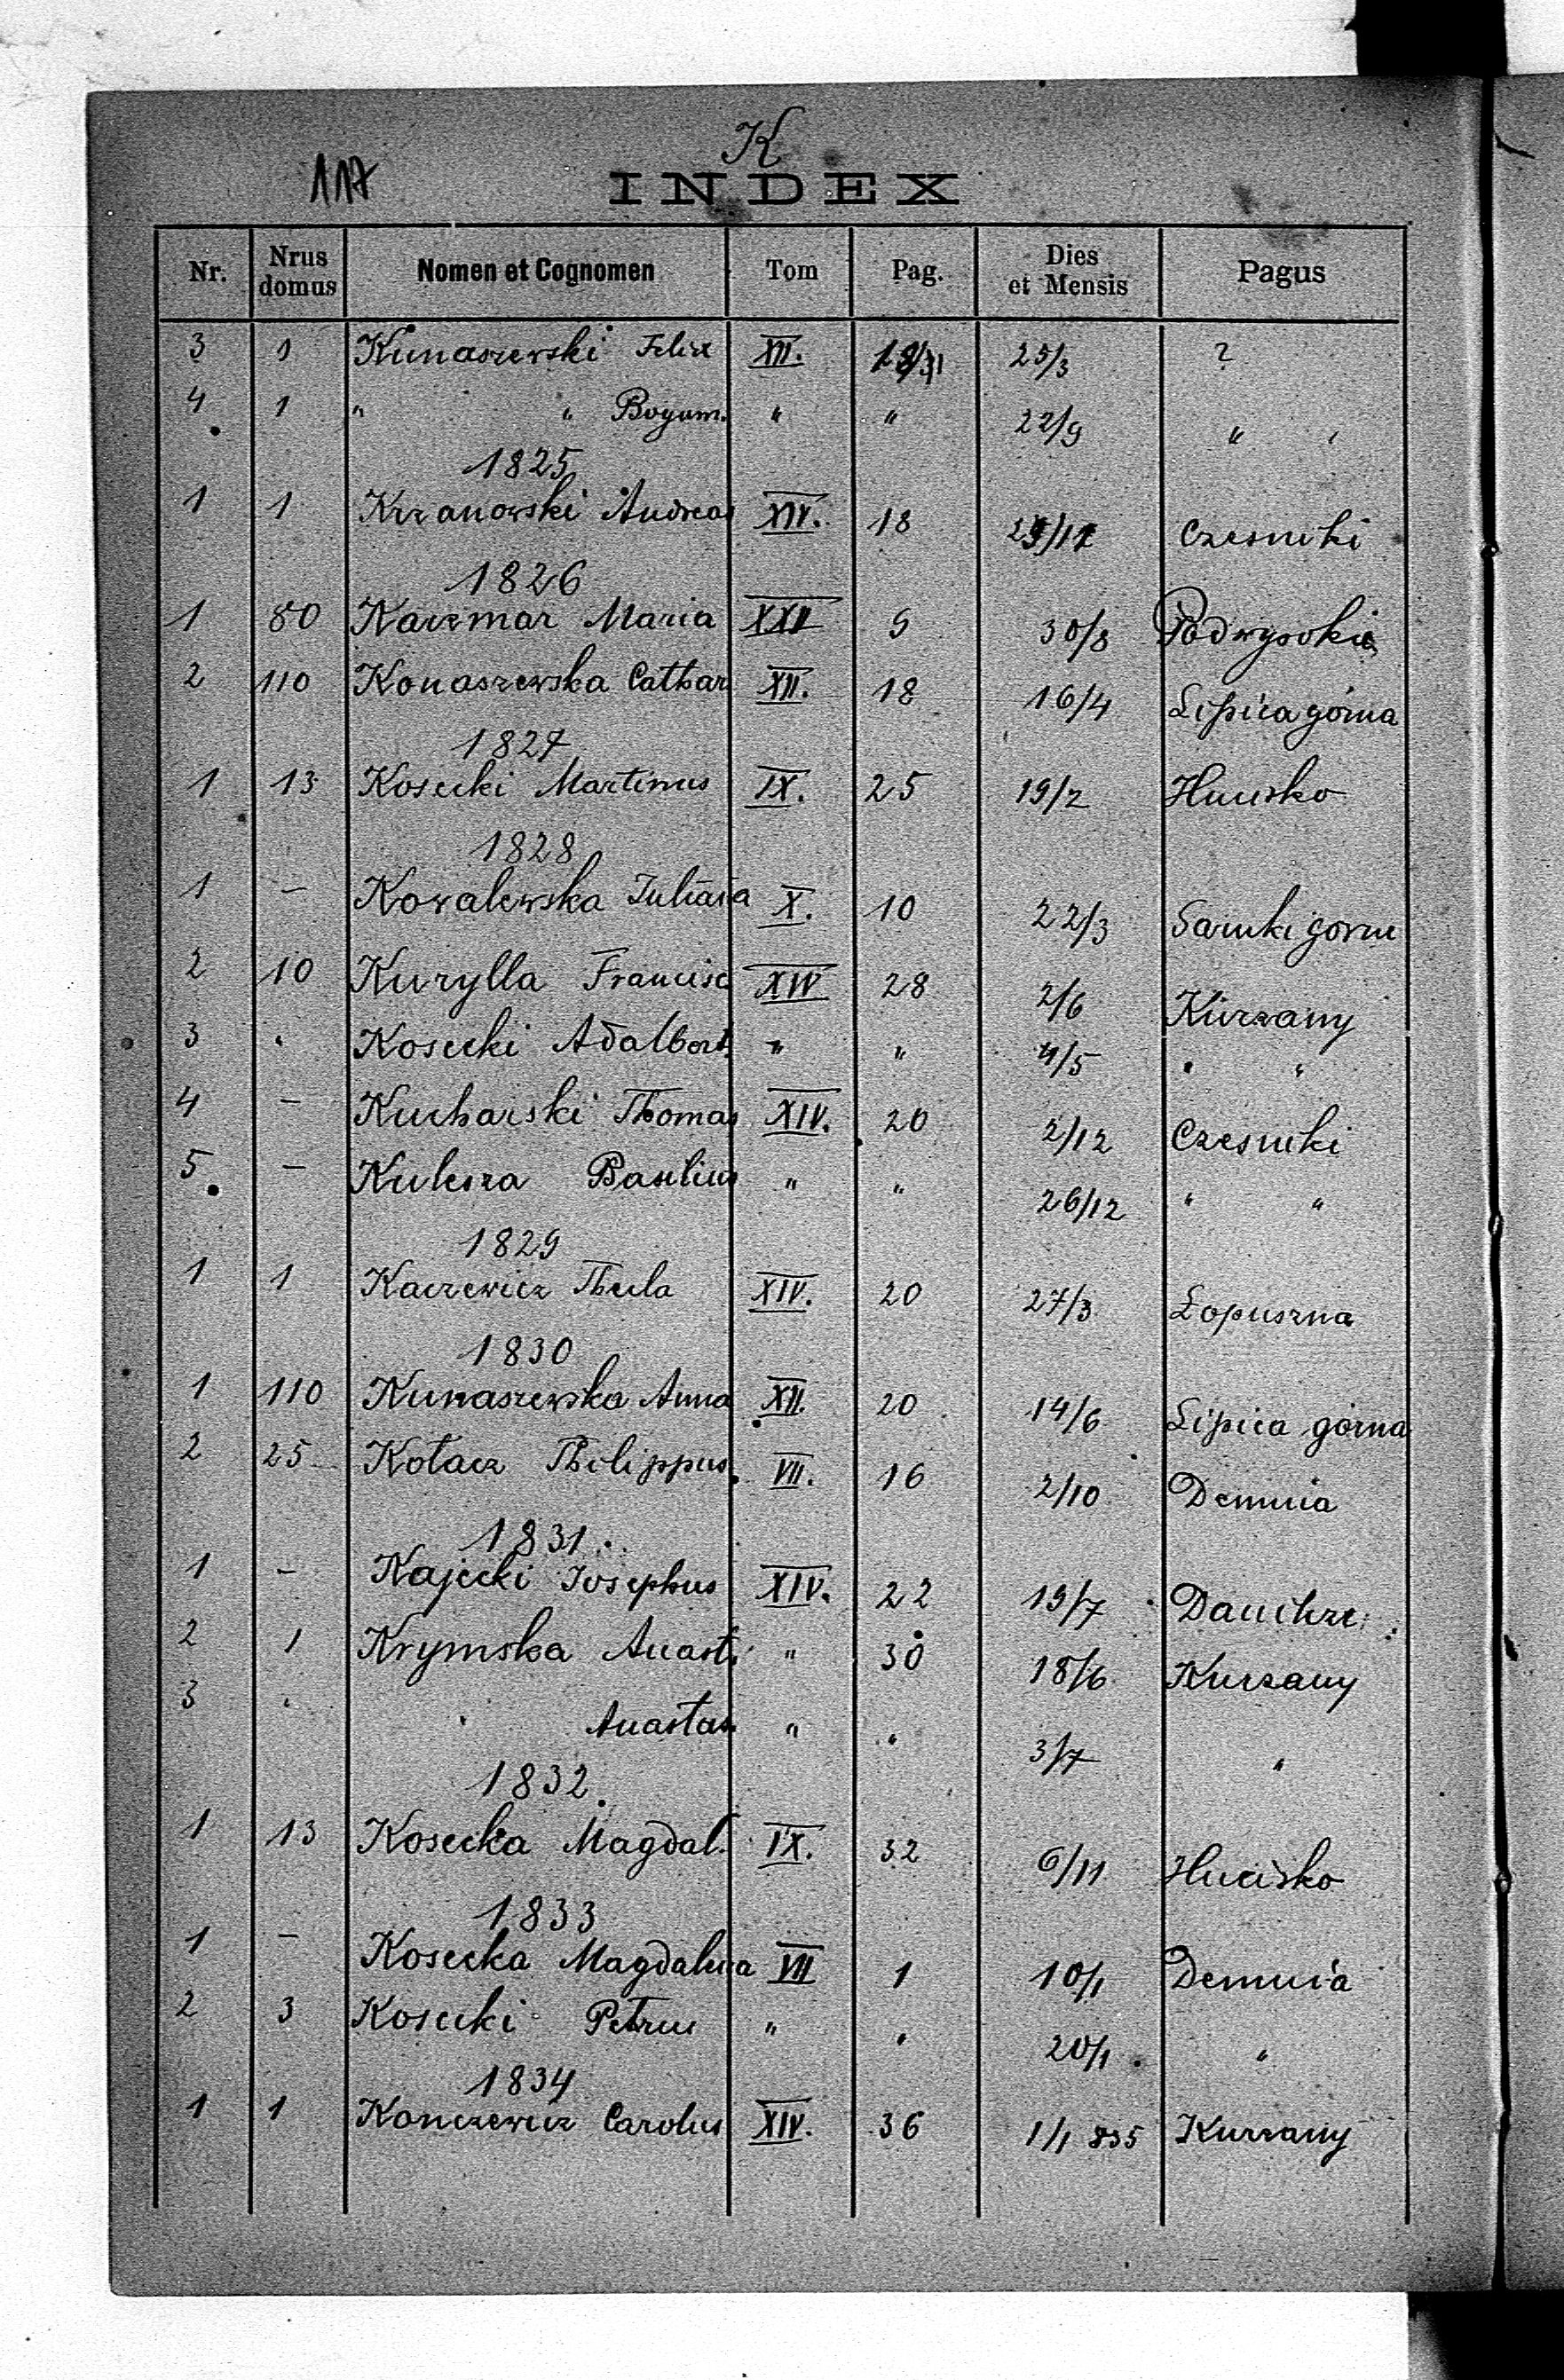 K
117
INDEX
Nr. Nrus domus Nomen et Cognomen Tom Pag. Dies et Mensis Pagus
3 1 Kunaszewski Felix XII. 25/3 ?
4 1 " " Bogum. " " 22/9 "
1825
1 1 Krzanowski Andreas XIV. 18 Czesniki
1826
1 80 Kaczmar Maria 9 30/8 Podwysokie
2 110 Konaszewska Cathar XII. 18 16/4 Lipica górna
1827
1 13 Kosecki Martinus IX. 25 19/2 Hucisko
1828
1 – Kowalewska Juliana X. 10 22/3 Sarnki gorne
2 10 Kurylla Francisc XIV 28 2/6 Kurzany
3 " Kosecki Adalbert. " " 4/5 " "
4 – Kucharski Thomas XIV. 20 2/12 Czesniki
5. – Kulesza Basilius " " 26/12 " "
1829
1 1 Kaczewicz Thecla XIV. 20 27/3 Lopuszna
1830
1 110 Kunaszewska Anna XII. 20 14/6 Lipica górna
2 25 Kołacz Philippus VII. 16 2/10 Demnia
1831.
1 – Kajecki Josephus XIV. 22 19/7
2 1 Krymska Anast. " 30 18/6 Kurzany
3 " " Anastas. " " 3/7 "
1832.
1 13 Kosecka Magdal. IX. 32 6/11 Hucisko
1833
1 – Kosecka Magdalena VII 1 10/1 Demnia
2 3 Kosecki Petrus " " 20/1 "
1834
1 1 Konczewicz Carolus XIV. 36 1/1 835 Kurzany